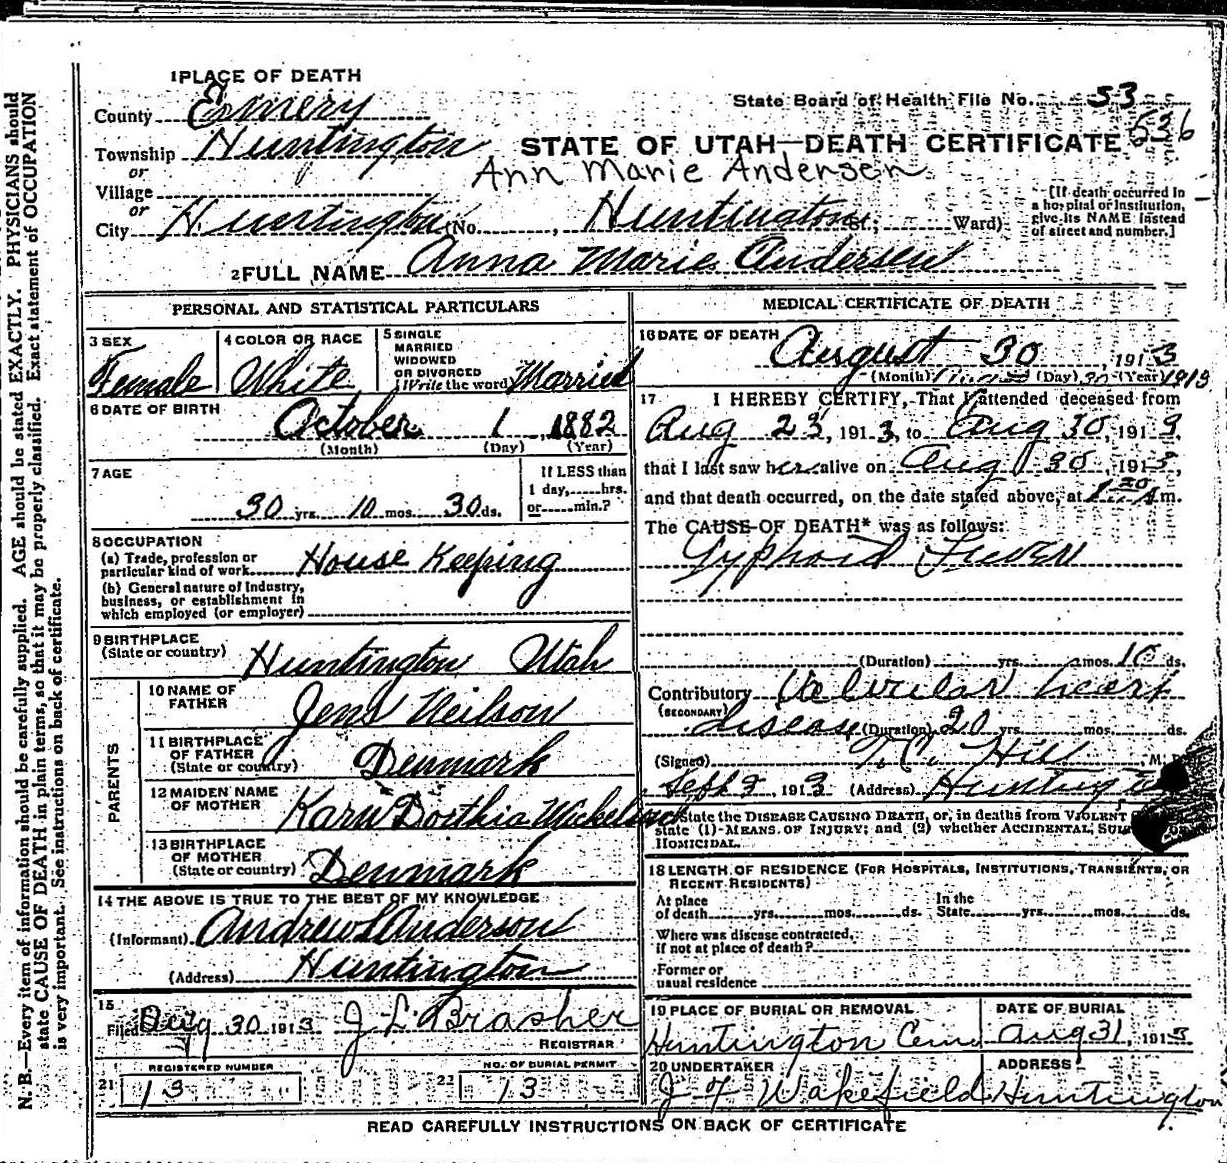 1 PLACE OF DEATH
County Emery
State Board of Health File No. 53
536
Township Huntington
STATE OF UTAH—DEATH CERTIFICATE
or
Ann Marie Andersen
Village
or
City Huntington (No. , Huntington St.; Ward)
[If death occurred in
a hospital or institution,
give its NAME instead
of street and number.]
2 FULL NAME Anna Marie Andersen
PERSONAL AND STATISTICAL PARTICULARS
3 SEX
Female
4 COLOR OR RACE
White
5 SINGLE
MARRIED
WIDOWED
OR DIVORCED
(Write the word) Married
6 DATE OF BIRTH
October 1, 1882
(Month) (Day) (Year)
7 AGE
30 yrs. 10 mos. 30 ds.
If LESS than
1 day,.....hrs.
or.....min.?
8 OCCUPATION
(a) Trade, profession or
particular kind of work House Keeping
(b) General nature of Industry,
business, or establishment in
which employed (or employer)
9 BIRTHPLACE
(State or country) Huntington Utah
PARENTS
10 NAME OF
FATHER Jens Neilson
11 BIRTHPLACE
OF FATHER
(State or country) Denmark
12 MAIDEN NAME
OF MOTHER Karn Dorthia
13 BIRTHPLACE
OF MOTHER
(State or country) Denmark
14 THE ABOVE IS TRUE TO THE BEST OF MY KNOWLEDGE
(Informant) Andrew Anderson
(Address) Huntington
15
Filed Aug 30 1913 J L Brasher
REGISTRAR
REGISTERED NUMBER
21 13
NO. OF BURIAL PERMIT
22 13
MEDICAL CERTIFICATE OF DEATH
16 DATE OF DEATH
August 30, 1913
(Month) August (Day) 30 (Year) 1913
17 I HEREBY CERTIFY, That I attended deceased from
Aug 23, 1913, to Aug 30, 1913,
that I last saw her alive on Aug 30, 1913,
and that death occurred, on the date stated above, at 1 20 A m.
The CAUSE OF DEATH* was as follows:
Typhoid Fever
(Duration) yrs. mos. 10 ds.
Contributory Valvular heart
(SECONDARY)
disease (Duration) 20 yrs. mos. ds.
(Signed) T.C. Hill, M. D.
Sept 2, 1913 (Address) Huntington
*State the DISEASE CAUSING DEATH, or, in deaths from VIOLENT
state (1) MEANS OF INJURY; and (2) whether ACCIDENTAL,
HOMICIDAL.
18 LENGTH OF RESIDENCE (FOR HOSPITALS, INSTITUTIONS, TRANSIENTS, OR
RECENT RESIDENTS)
At place In the
of death yrs. mos. ds. State yrs. mos. ds.
Where was disease contracted,
if not at place of death?
Former or
usual residence
19 PLACE OF BURIAL OR REMOVAL
Huntington Cem.
DATE OF BURIAL
Aug 31, 1913
20 UNDERTAKER
J F Wakefield
ADDRESS
Huntington
READ CAREFULLY INSTRUCTIONS ON BACK OF CERTIFICATE
N. B.—Every item of information should be carefully supplied. AGE should be stated EXACTLY. PHYSICIANS should
state CAUSE OF DEATH in plain terms, so that it may be properly classified. Exact statement of OCCUPATION
is very important. See instructions on back of certificate.